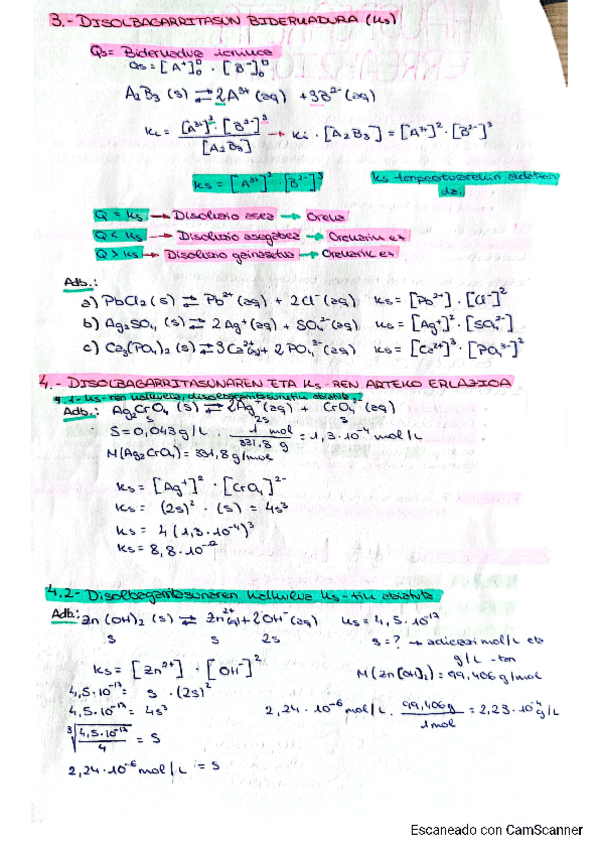 3.- DISOLBAGARRITASUN BIDERKADURA (Ks)
Qs = Biderkadura ionikoa
Qs = [A⁺]₀ᵃ · [B⁻]₀ᵇ
A₂B₃ (s) ⇄ 2A³⁺ (aq) + 3B²⁻ (aq)
Ki = [A³⁺]² · [B²⁻]³ / [A₂B₃] → Ki · [A₂B₃] = [A³⁺]² · [B²⁻]³
Ks = [A³⁺]² · [B²⁻]³ Ks tenperaturarekin aldatzen da.
Q = Ks → Disoluzio asea → Oreka
Q < Ks → Disoluzio asegabea → Orekarik ez
Q > Ks → Disoluzio gainasetua → Orekarik ez
Adb.:
a) PbCl₂ (s) ⇄ Pb²⁺ (aq) + 2Cl⁻ (aq) Ks = [Pb²⁺] · [Cl⁻]²
b) Ag₂SO₄ (s) ⇄ 2Ag⁺ (aq) + SO₄²⁻ (aq) Ks = [Ag⁺]² · [SO₄²⁻]
c) Ca₃(PO₄)₂ (s) ⇄ 3Ca²⁺(aq) + 2PO₄³⁻ (aq) Ks = [Ca²⁺]³ · [PO₄³⁻]²
4.- DISOLBAGARRITASUNAREN ETA Ks-REN ARTEKO ERLAZIOA
4.1- Ks-ren kalkulua, disolbagarritasunetik abiatuta
Adb.: Ag₂CrO₄ (s) ⇄ 2Ag⁺ (aq) + CrO₄ (aq)
s 2s s
S = 0,043 g/L · 1 mol / 331,8 g = 1,3·10⁻⁴ mol/L
M(Ag₂CrO₄) = 331,8 g/mol
Ks = [Ag⁺]² · [CrO₄]²⁻
Ks = (2s)² · (s) = 4s³
Ks = 4 (1,3·10⁻⁴)³
Ks = 8,8·10⁻¹²
4.2- Disolbagarritasunaren kalkulua Ks-tik abiatuta
Adb: Zn(OH)₂ (s) ⇄ Zn²⁺(aq) + 2OH⁻ (aq) Ks = 4,5·10⁻¹⁷
s s 2s s = ? → adierazi mol/L eta
g/L-tan
Ks = [Zn²⁺] · [OH⁻]² M(Zn(OH)₂) = 99,406 g/mol
4,5·10⁻¹⁷ = s · (2s)²
4,5·10⁻¹⁷ = 4s³ 2,24·10⁻⁶ mol/L · 99,406 g / 1 mol = 2,23·10⁻⁴ g/L
³√(4,5·10⁻¹⁷ / 4) = s
2,24·10⁻⁶ mol/L = s
Escaneado con CamScanner